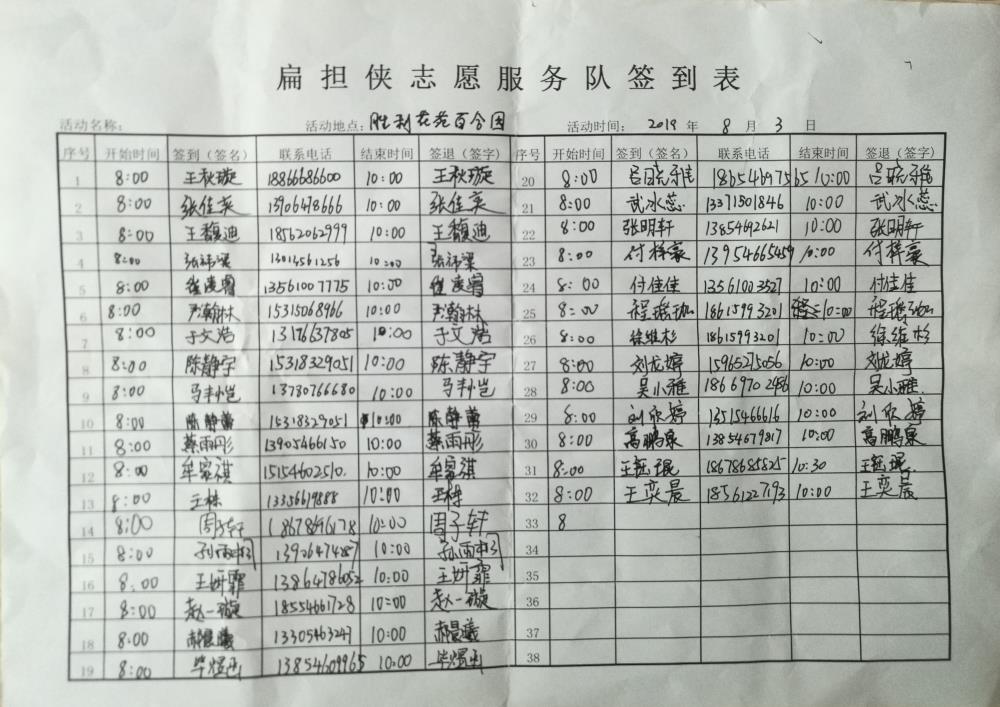 扁担侠志愿服务队签到表
活动名称: 活动地点: 胜利花苑百合园 活动时间: 2019 年 8 月 3 日
序号 开始时间 签到(签名) 联系电话 结束时间 签退(签字) 序号 开始时间 签到(签名) 联系电话 结束时间 签退(签字)
1 8:00 王秋璇 18866686600 10:00 王秋璇 20 8:00 吕晓 18654697565 10:00 吕晓
2 8:00 张佳英 13906478666 10:00 张佳英 21 8:00 武冰蕊 13371501846 10:00 武冰蕊
3 8:00 王馥迪 18562062999 10:00 王馥迪 22 8:00 张明轩 13854692621 10:00 张明轩
4 8:00 13013561256 10:00 23 8:00 付梓豪 13954665459 10:00 付梓豪
5 8:00 13561007775 10:00 24 8:00 付佳佳 13561003527 10:00 付佳佳
6 8:00 尹瀚林 15315068966 10:00 尹瀚林 25 8:00 程瑶珈 18615993201 10:00 程瑶珈
7 8:00 于文浩 13176637805 10:00 于文浩 26 8:00 徐维杉 18615993201 10:00 徐维杉
8 8:00 陈静宇 15318329051 10:00 陈静宇 27 8:00 刘龙婷 15965275056 10:00 刘龙婷
9 8:00 13780766680 10:00 28 8:00 吴小雅 18669702486 10:00 吴小雅
10 8:00 陈静蕾 15318329051 10:00 陈静蕾 29 8:00 刘欣婷 13515466616 10:00 刘欣婷
11 8:00 蔡雨彤 13905466150 10:00 蔡雨彤 30 8:00 高鹏泉 13854679817 10:00 高鹏泉
12 8:00 牟家祺 15154602510. 10:00 牟家祺 31 8:00 王钰琨 18678685825 10:30 王钰琨
13 8:00 王栋 13356619888 10:00 王栋 32 8:00 王奕晨 18561227193 10:00 王奕晨
14 8:00 周子轩 18678696178 10:00 周子轩 33 8
15 8:00 孙雨桐 13906474287 10:00 孙雨桐 34
16 8:00 王妍霏 13864786052 10:00 王妍霏 35
17 8:00 赵一璇 18554661728 10:00 赵一璇 36
18 8:00 郝晨曦 13305463247 10:00 郝晨曦 37
19 8:00 毕煜函 13854609965 10:00 毕煜函 38